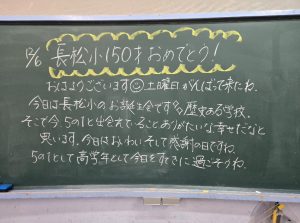 12/6 長松小150才おめでとう!
おはようございます☺土曜日がんばって来たね。
今日は長松小のお誕生会です。歴史ある学校。
そこで今、5の1と出会えていることありがたいな幸せだなと
思います。今日はお祝いそして感謝の日ですね。
5の1として高学年として今日をすてきに過ごそうね。